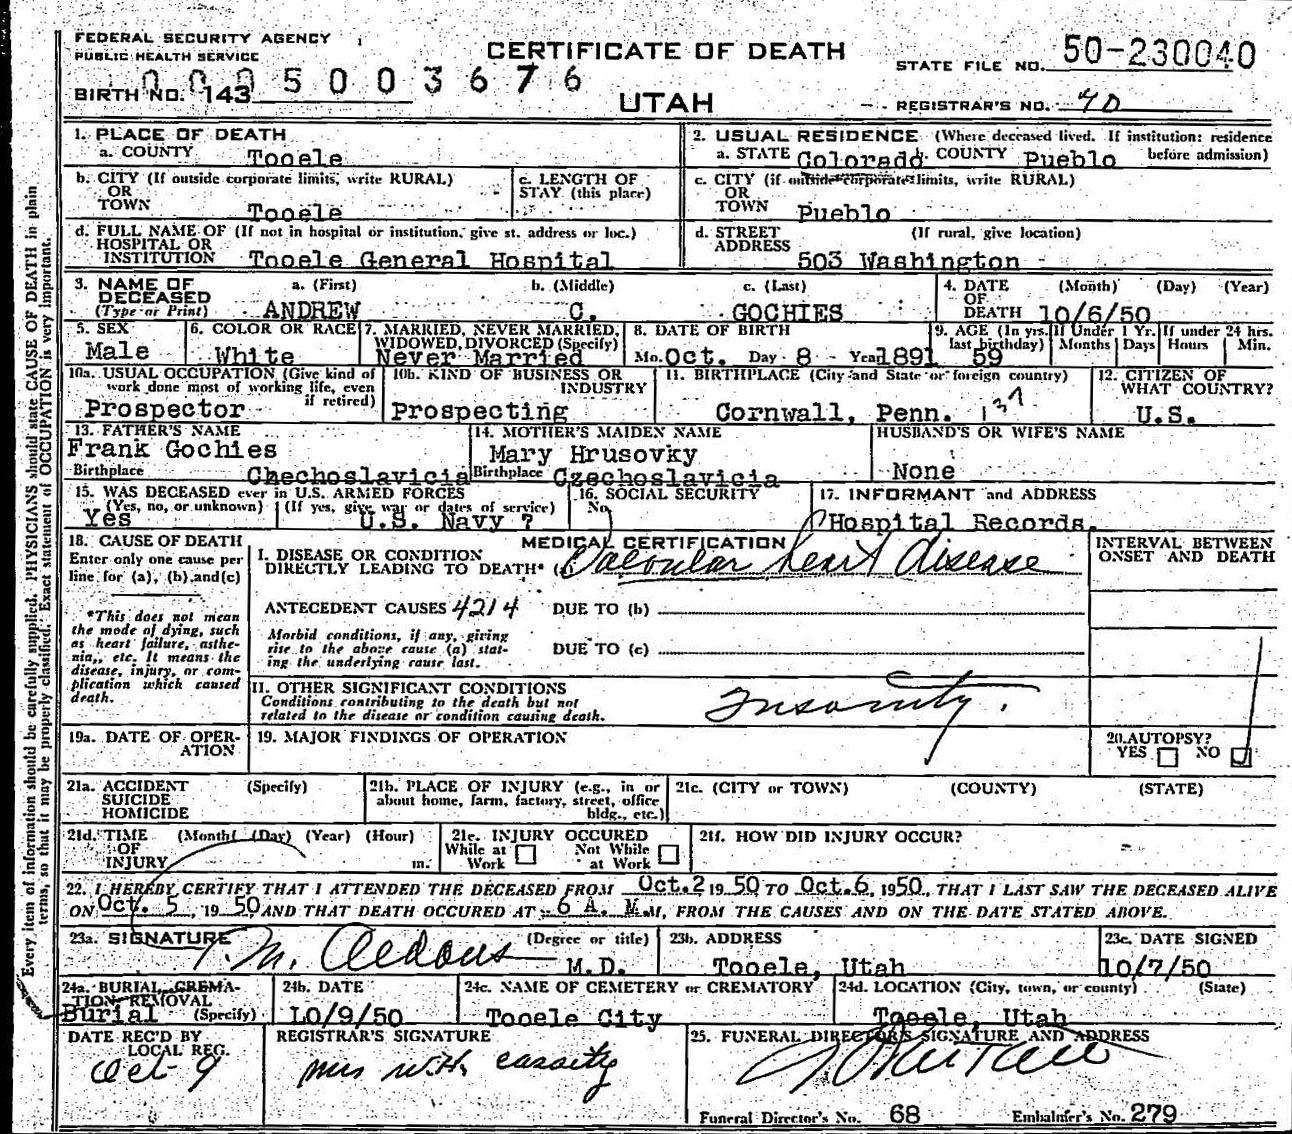 FEDERAL SECURITY AGENCY
PUBLIC HEALTH SERVICE
CERTIFICATE OF DEATH
UTAH
STATE FILE NO. 50-230040
0005003676
BIRTH NO. 143
REGISTRAR'S NO. 70
1. PLACE OF DEATH
a. COUNTY Tooele
2. USUAL RESIDENCE (Where deceased lived. If institution: residence before admission)
a. STATE Colorado. COUNTY Pueblo
b. CITY (If outside corporate limits, write RURAL)
OR
TOWN Tooele
c. LENGTH OF
STAY (this place)
c. CITY (if outside corporate limits, write RURAL)
OR
TOWN Pueblo
d. FULL NAME OF (If not in hospital or institution, give st. address or loc.)
HOSPITAL OR
INSTITUTION Tooele General Hospital
d. STREET (If rural, give location)
ADDRESS 503 Washington
3. NAME OF
DECEASED
(Type or Print)
a. (First) ANDREW
b. (Middle) C.
c. (Last) GOCHIES
4. DATE (Month) (Day) (Year)
OF
DEATH 10/6/50
5. SEX
Male
6. COLOR OR RACE
White
7. MARRIED, NEVER MARRIED,
WIDOWED, DIVORCED (Specify)
Never Married
8. DATE OF BIRTH
Mo. Oct. Day 8 - Year 1891
9. AGE (In yrs. last birthday) 59
If Under 1 Yr. Months Days
If under 24 hrs. Hours Min.
10a. USUAL OCCUPATION (Give kind of
work done most of working life, even
if retired)
Prospector
10b. KIND OF BUSINESS OR
INDUSTRY
Prospecting
11. BIRTHPLACE (City and State or foreign country)
Cornwall, Penn. 137
12. CITIZEN OF
WHAT COUNTRY?
U.S.
13. FATHER'S NAME
Frank Gochies
Birthplace Chechoslavicia
14. MOTHER'S MAIDEN NAME
Mary Hrusovky
Birthplace Czechoslavicia
HUSBAND'S OR WIFE'S NAME
None
15. WAS DECEASED ever in U.S. ARMED FORCES
(Yes, no, or unknown) (If yes, give war or dates of service)
Yes U.S. Navy ?
16. SOCIAL SECURITY
No.
17. INFORMANT and ADDRESS
Hospital Records.
18. CAUSE OF DEATH
Enter only one cause per
line for (a), (b) and (c)
*This does not mean
the mode of dying, such
as heart failure, asthe-
nia, etc. It means the
disease, injury, or com-
plication which caused
death.
MEDICAL CERTIFICATION
I. DISEASE OR CONDITION
DIRECTLY LEADING TO DEATH* (a) Valvular heart disease
ANTECEDENT CAUSES 4214 DUE TO (b)
Morbid conditions, if any, giving
rise to the above cause (a) stat-
ing the underlying cause last.
DUE TO (c)
INTERVAL BETWEEN
ONSET AND DEATH
II. OTHER SIGNIFICANT CONDITIONS
Conditions contributing to the death but not
related to the disease or condition causing death.
Insanity.
19a. DATE OF OPER-
ATION
19. MAJOR FINDINGS OF OPERATION
20. AUTOPSY?
YES NO
21a. ACCIDENT (Specify)
SUICIDE
HOMICIDE
21b. PLACE OF INJURY (e.g., in or
about home, farm, factory, street, office
bldg., etc.)
21c. (CITY or TOWN) (COUNTY) (STATE)
21d. TIME (Month) (Day) (Year) (Hour)
OF
INJURY m.
21e. INJURY OCCURED
While at Work Not While at Work
21f. HOW DID INJURY OCCUR?
22. I HEREBY CERTIFY THAT I ATTENDED THE DECEASED FROM Oct. 2 19 50 TO Oct. 6, 19 50, THAT I LAST SAW THE DECEASED ALIVE
ON Oct. 5, 19 50 AND THAT DEATH OCCURED AT 6 A. M.M, FROM THE CAUSES AND ON THE DATE STATED ABOVE.
23a. SIGNATURE (Degree or title)
T. M. Aldous M.D.
23b. ADDRESS
Tooele, Utah
23c. DATE SIGNED
10/7/50
24a. BURIAL, CREMA-
TION, REMOVAL
Burial (Specify)
24b. DATE
10/9/50
24c. NAME OF CEMETERY or CREMATORY
Tooele City
24d. LOCATION (City, town, or county) (State)
Tooele, Utah
DATE REC'D BY
LOCAL REG.
Oct-9
REGISTRAR'S SIGNATURE
Mrs W.H. Cassity
25. FUNERAL DIRECTOR'S SIGNATURE AND ADDRESS
Funeral Director's No. 68 Embalmer's No. 279
Every item of information should be carefully supplied. PHYSICIANS should state CAUSE OF DEATH in plain
terms, so that it may be properly classified. Exact statement of OCCUPATION is very important.